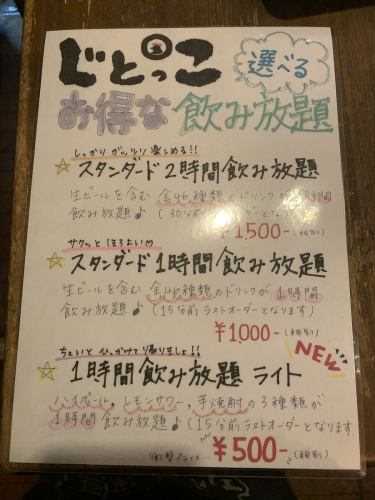 じとっこ
選べる
お得な 飲み放題
しっかり ガッツリ 楽しめる!!
☆ スタンダード 2時間飲み放題
生ビールを含む 全46種類のドリンクが 2時間
飲み放題♪ (30分前
¥1,500- (税別)
サクッと ほろよい♡
☆ スタンダード 1時間飲み放題
生ビールを含む 全46種類のドリンクが 1時間
飲み放題♪ (15分前ラストオーダーとなります)
¥1,000- (税別)
NEW
ちょいと ひっかけて帰りましょ!!
☆ 1時間飲み放題 ライト
ハイボール、レモンサワー、芋焼酎の3種類が
1時間 飲み放題♪ (15分前ラストオーダーとなります)
衝撃プライス... ¥500- (税別)